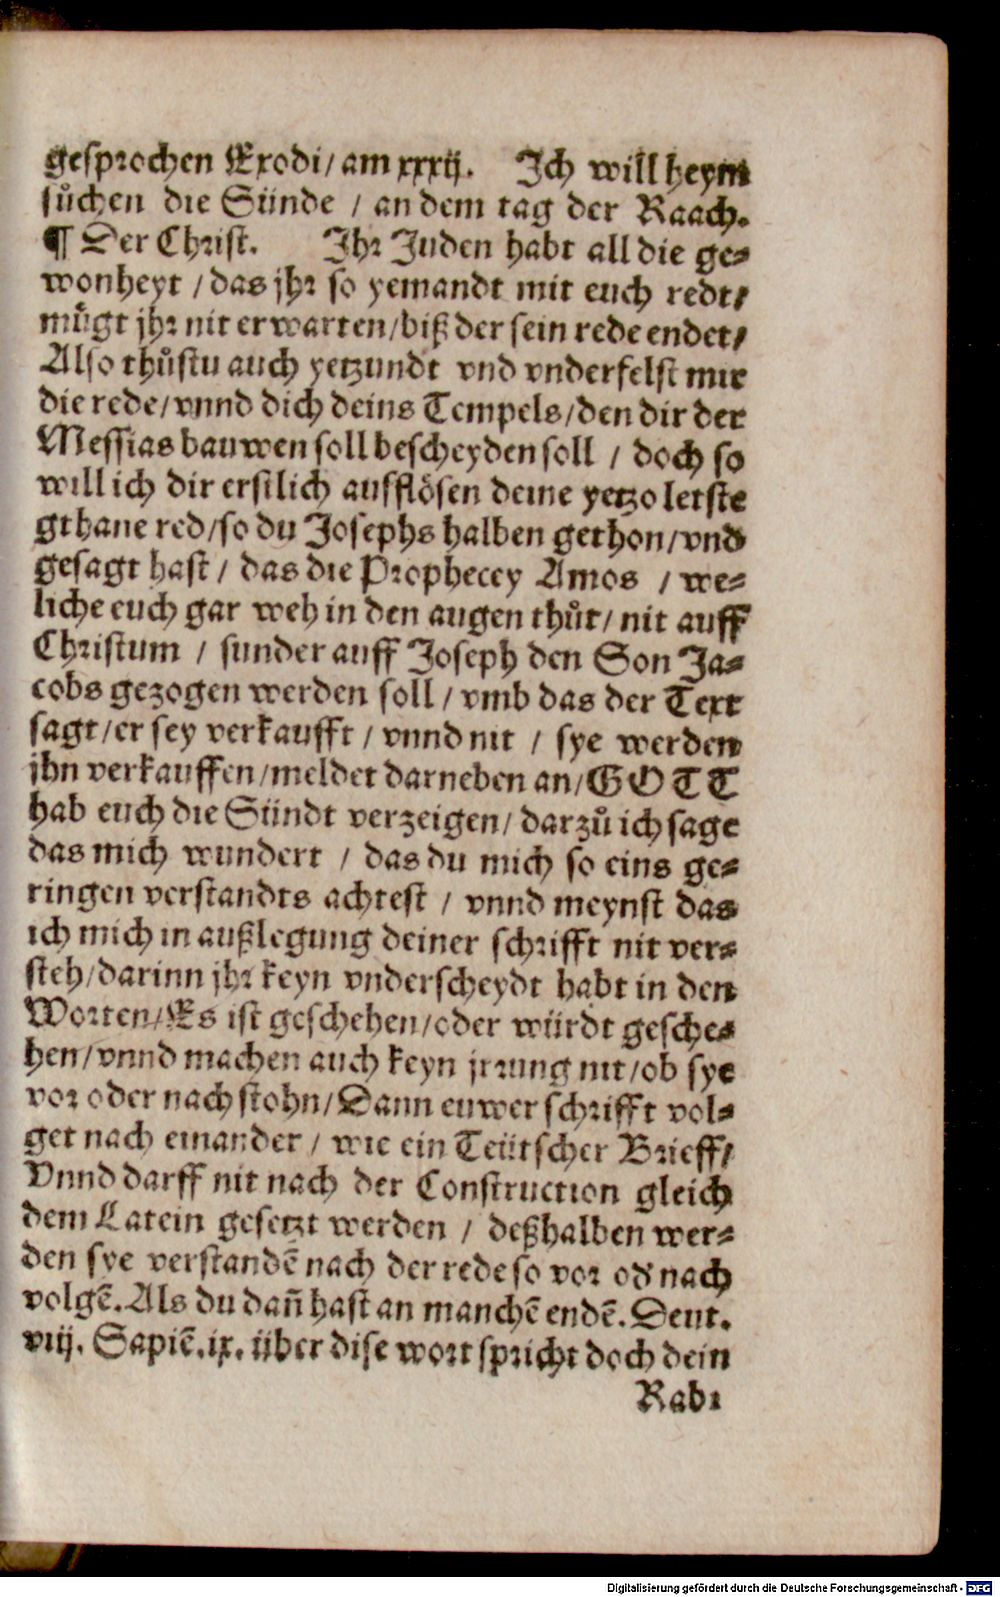 gesprochen Exodi/ am xxxij. Ich will heym
sůchen die Sünde / an dem tag der Raach.
¶ Der Christ. Ihr Juden habt all die ge⸗
wonheyt / das jhr so yemandt mit euch redt/
mügt jhr nit erwarten/biß der sein rede endet/
Also thůstu auch yetzundt vnd vnderfelst mir
die rede/vnnd dich deins Tempels/den dir der
Messias bauwen soll bescheyden soll / doch so
will ich dir erstlich aufflösen deine yetzo letste
gthane red/so du Josephs halben gethon/vnd
gesagt hast / das die Prophecey Amos / we⸗
liche euch gar weh in den augen thůt/ nit auff
Christum / sunder auff Joseph den Son Ja⸗
cobs gezogen werden soll / vmb das der Text
sagt/er sey verkaufft / vnnd nit / sye werden
jhn verkauffen/meldet darneben an/GOTT
hab euch die Sündt verzeigen/ darzů ich sage
das mich wundert / das du mich so eins ge⸗
ringen verstandts achtest / vnnd meynst das
ich mich in außlegung deiner schrifft nit ver⸗
steh/darinn jhr keyn vnderscheydt habt in den
Worten/Es ist geschehen/oder würdt gesche⸗
hen/vnnd machen auch keyn jrrung nit/ob sye
vor oder nach stohn/Dann euwer schrifft vol⸗
get nach einander / wie ein Teütscher Brieff/
Vnnd darff nit nach der Construction gleich
dem Latein gesetzt werden / deßhalben wer⸗
den sye verstandẽ nach der rede so vor od' nach
volgẽ. Als du dañ hast an manchẽ endẽ. Deut.
viij. Sapiẽ.ix. über dise wort spricht doch dein
Rabi
Digitalisierung gefördert durch die Deutsche Forschungsgemeinschaft - DFG